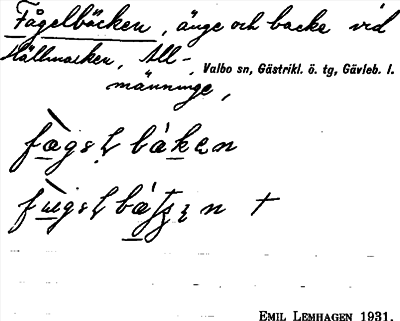 Fågelbäcken, änge och backe vid
Hällmarken, All-
männinge,
Valbo sn, Gästrikl. ö. tg, Gävleb. l.
EMIL LEMHAGEN 1931.